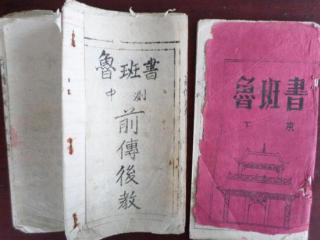 魯班書
中測
前傳後教
魯班書
下京